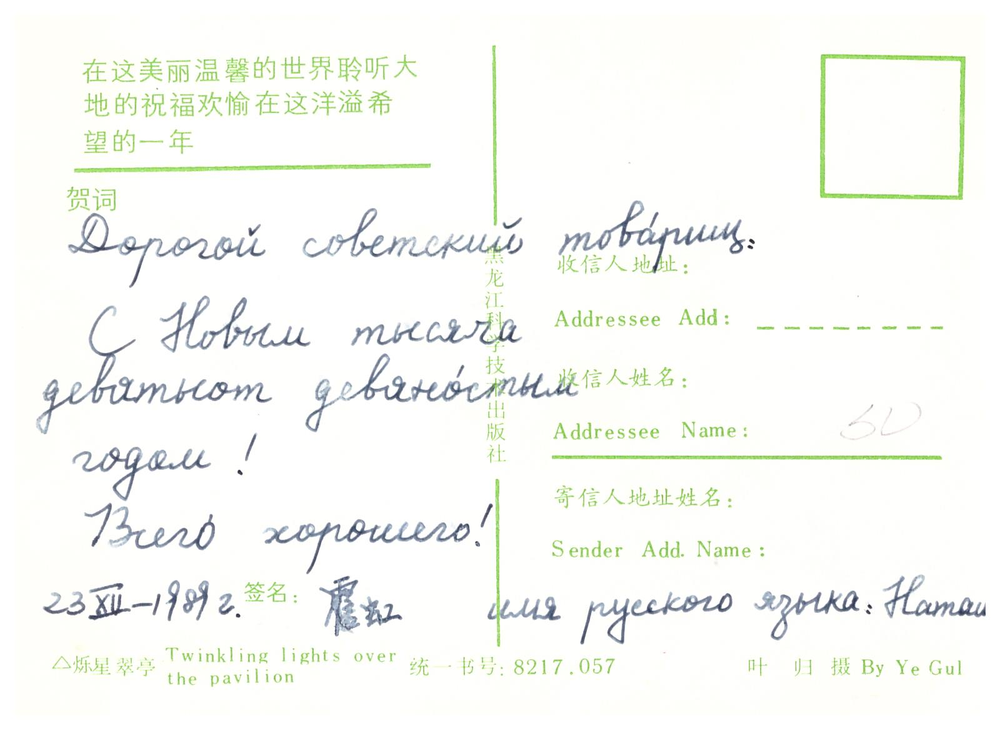 在这美丽温馨的世界聆听大
地的祝福欢愉在这洋溢希
望的一年
贺词
Дорогой советский това́рищ:
С Новым тысяча
девятьсот девяно́стым
годом!
Всего́ хорошего!
23 XII-1989 г.
签名:
имя русского языка: Наташ
黑龙江科学技术出版社
收信人地址:
Addressee Add:
收信人姓名:
Addressee Name:
寄信人地址姓名:
Sender Add. Name:
△烁星翠亭 Twinkling lights over
the pavilion
统一书号: 8217.057
叶 归 摄 By Ye Gul